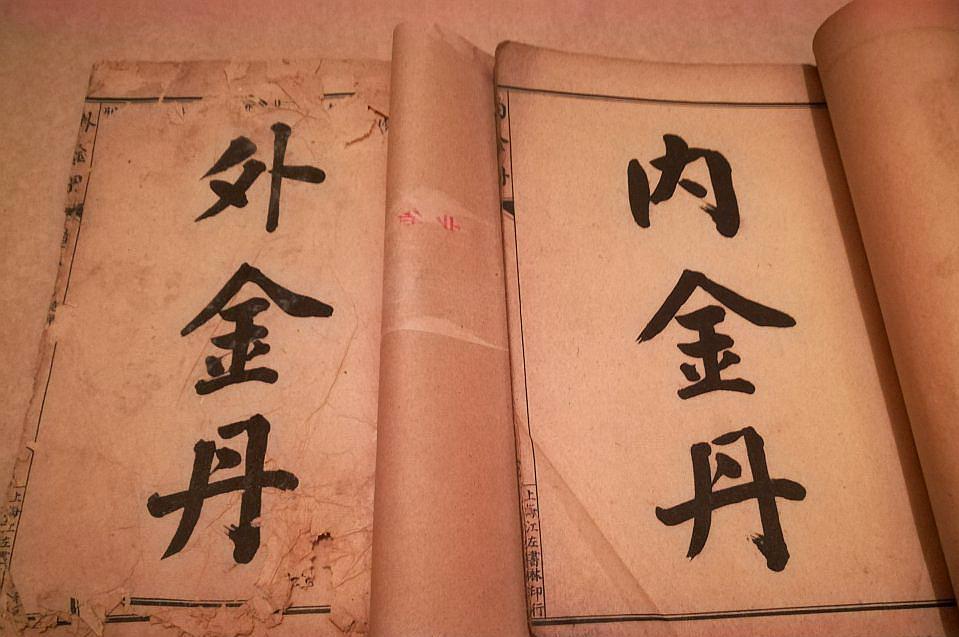 外金丹
內金丹
上海江左書林印行